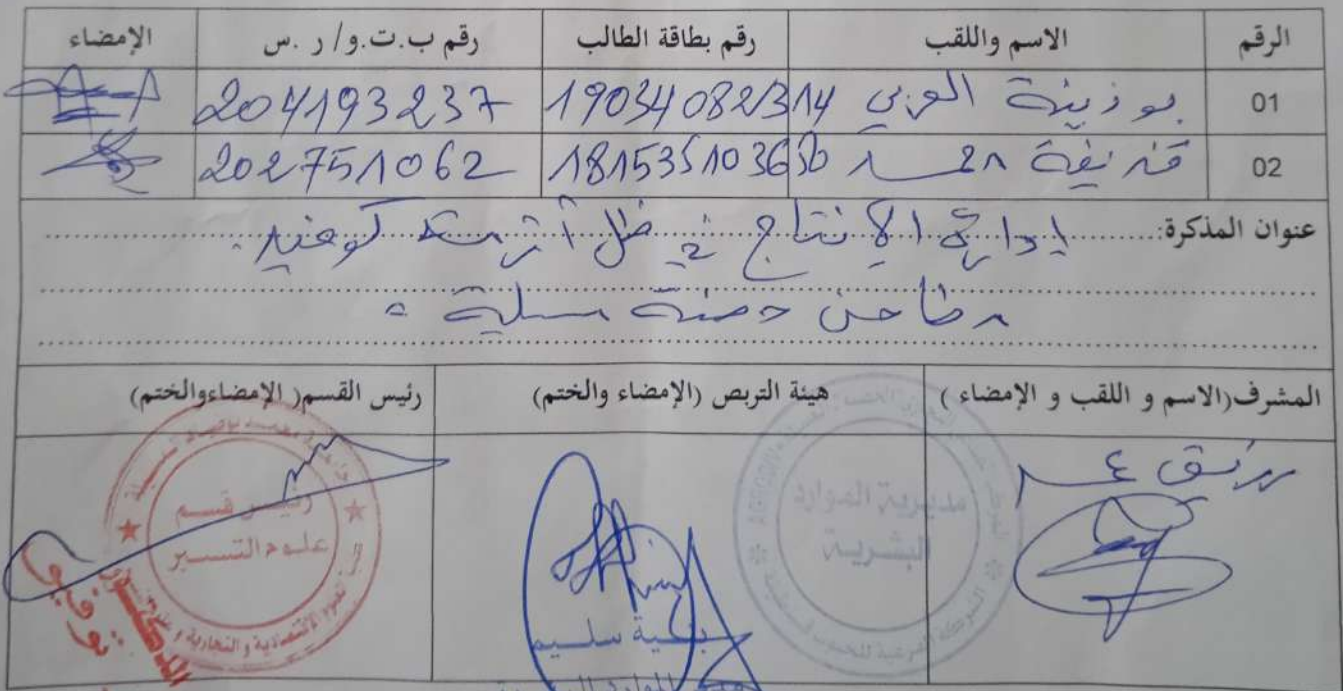 الرقم الاسم واللقب رقم بطاقة الطالب رقم ب.ت.و/ ر .س الإمضاء
01 بوذينة العربي 19034082314 204193237
02 قذيفة محمد 18153510363 2027551062
عنوان المذكرة: إدارة الإنتاج في ظل أزمة كوفيد
مطاحن حضنة مسيلة
المشرف(الاسم و اللقب و الإمضاء ) هيئة التربص (الإمضاء والختم) رئيس القسم( الإمضاءوالختم)
رزيق عمر
مديرية الموارد
البشرية
رئيس قسم
علوم التسيير
سليم